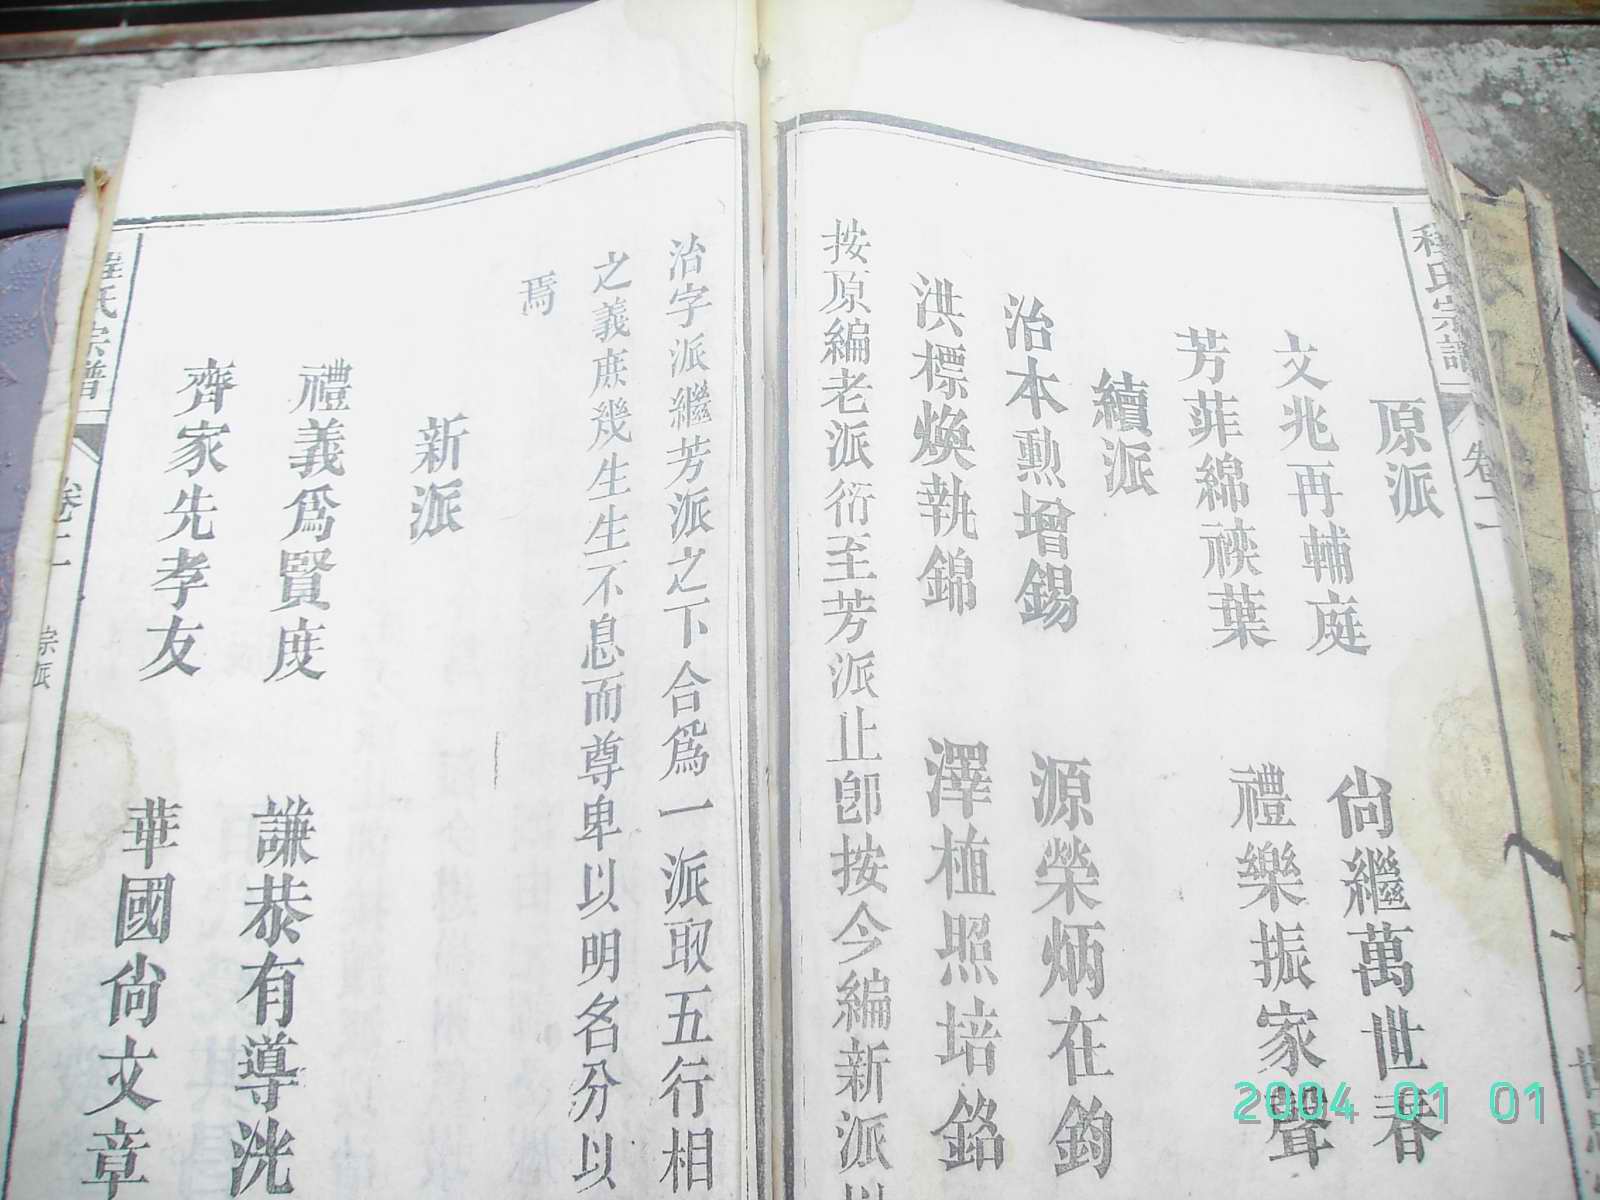 程氏宗譜 卷二
原派
文兆再輔庭 尙繼萬世春
芳菲綿䄂葉 禮樂振家聲
續派
治本勲增錫 源榮炳在鈞
洪標煥執錦 澤植照培銘
按原編老派衍至芳派止卽按今編新派以
治字派繼芳派之下合爲一派取五行相
之義庶幾生生不息而尊卑以明名分以
焉
新派
禮義爲賢度 謙恭有導洸
齊家先孝友 華國尙文章
程氏宗譜 卷二 宗派
2004 01 01